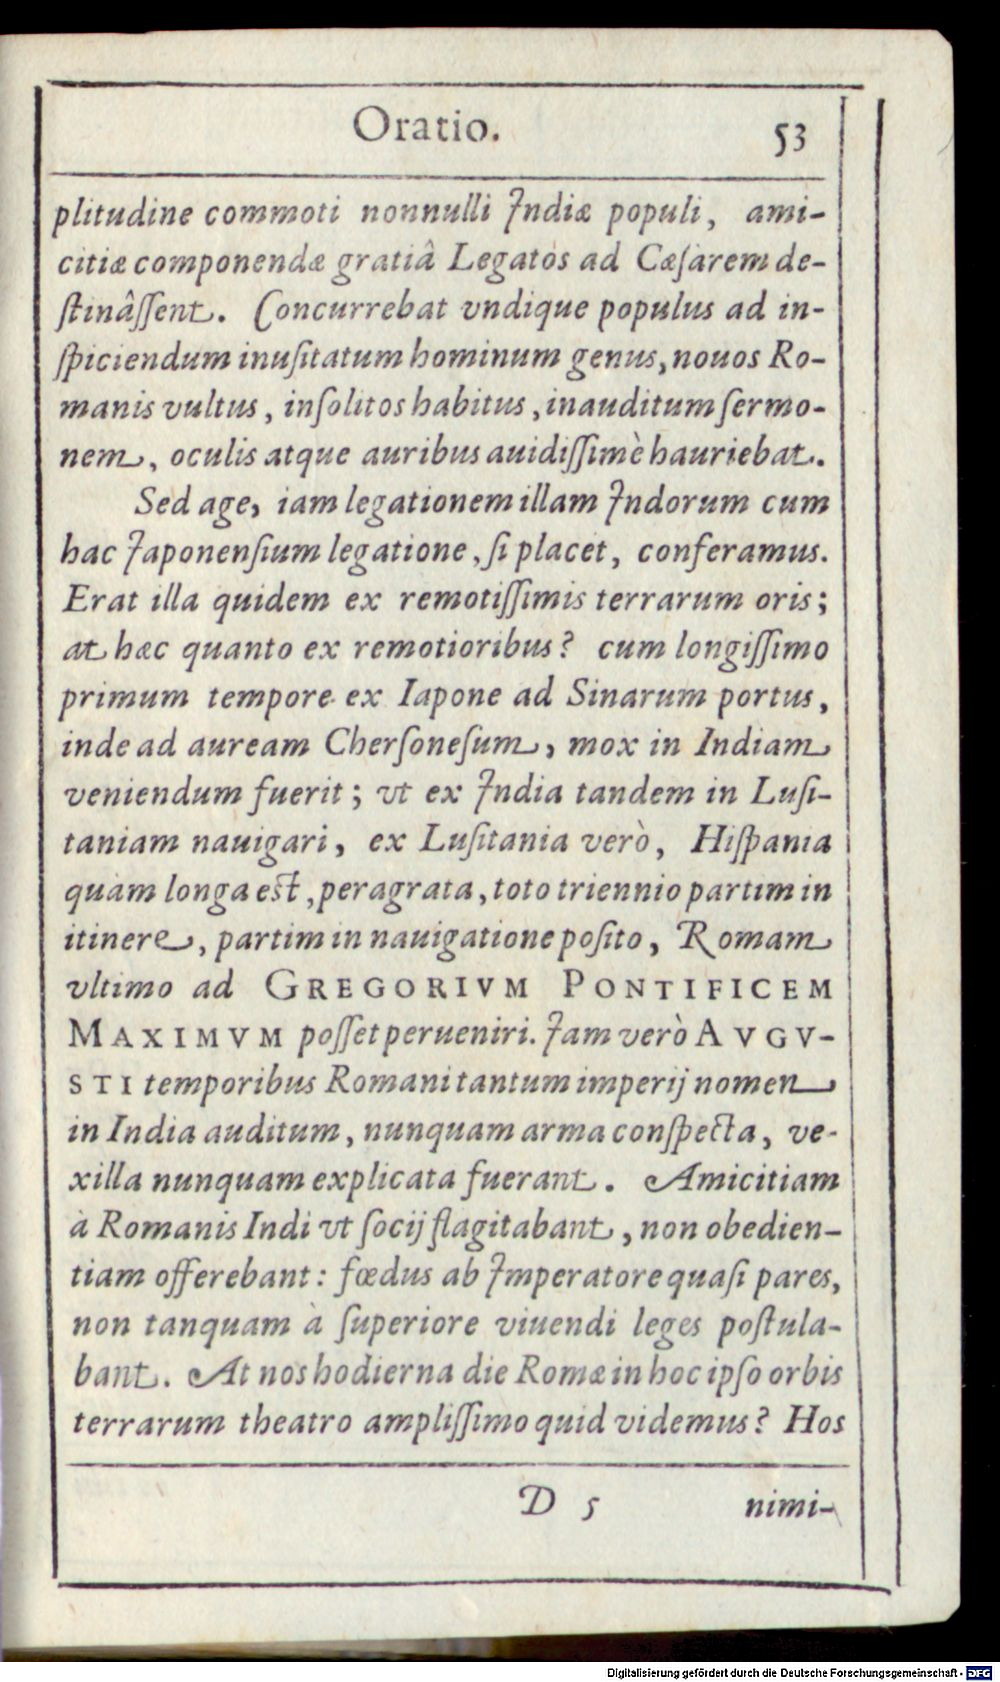 Oratio. 53
plitudine commoti nonnulli Indiæ populi, ami-
citiæ componendæ gratiâ Legatos ad Cæſarem de-
ſtinâſſent. Concurrebat vndique populus ad in-
ſpiciendum inuſitatum hominum genus, nouos Ro-
manis vultus, inſolitos habitus, inauditum ſermo-
nem, oculis atque auribus auidiſſimè hauriebat.
Sed age, iam legationem illam Indorum cum
hac Japonenſium legatione, ſi placet, conferamus.
Erat illa quidem ex remotiſſimis terrarum oris;
at hæc quanto ex remotioribus? cum longiſſimo
primum tempore ex Iapone ad Sinarum portus,
inde ad auream Cherſoneſum, mox in Indiam
veniendum fuerit; vt ex India tandem in Luſi-
taniam nauigari, ex Luſitania verò, Hiſpania
quàm longa eſt, peragrata, toto triennio partim in
itinere, partim in nauigatione poſito, Romam
vltimo ad GREGORIVM PONTIFICEM
MAXIMVM poſſet perueniri. Jam verò AVGV-
STI temporibus Romani tantum imperij nomen
in India auditum, nunquam arma conſpecta, ve-
xilla nunquam explicata fuerant. Amicitiam
à Romanis Indi vt ſocij flagitabant, non obedien-
tiam offerebant: fœdus ab Imperatore quaſi pares,
non tanquam à ſuperiore viuendi leges poſtula-
bant. At nos hodierna die Romæ in hoc ipſo orbis
terrarum theatro ampliſſimo quid videmus? Hos
D 5 nimi-
Digitalisierung gefördert durch die Deutsche Forschungsgemeinschaft - DFG